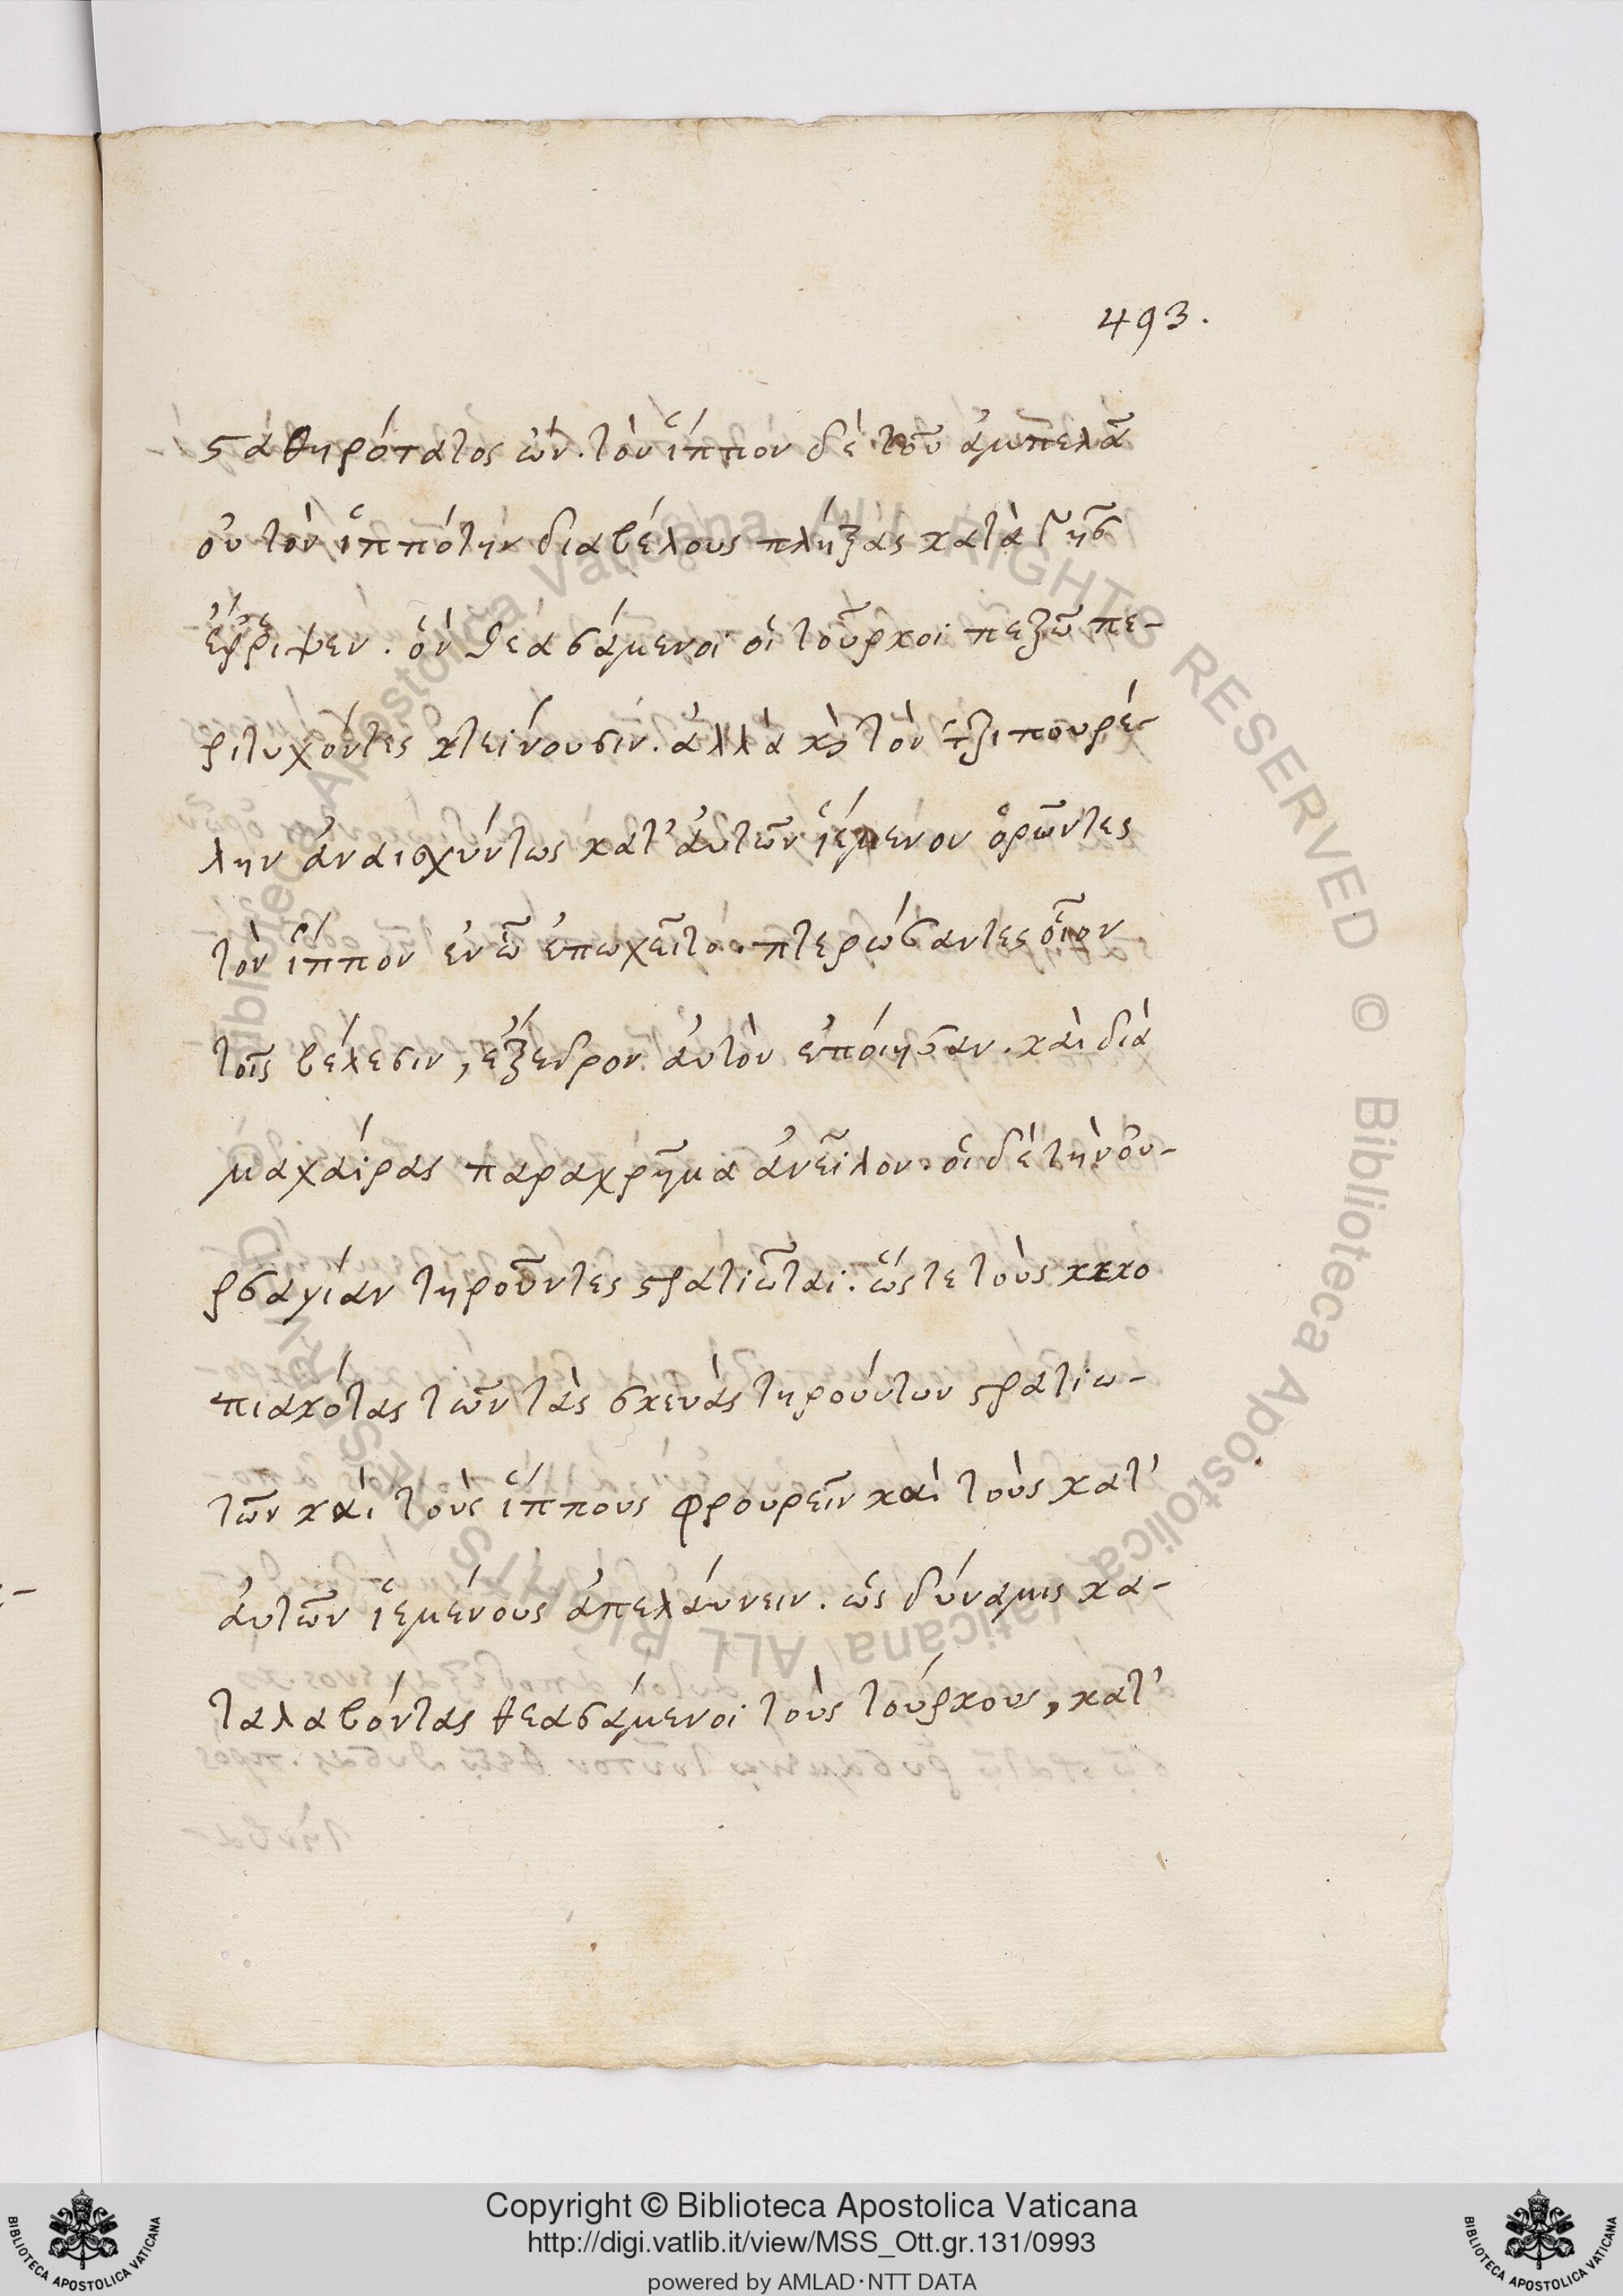 493.
σταθηρότατος ὤν. τὸν ἵππον δὲ τοῦ ἀμπελᾶ
οὐ τὸν ἱππότην διαβέλους πλήξας κατὰ γῆς
ἔρριψεν. ὃν θεασάμενοι οἱ τοῦρκοι πεζῶ πε-
ριτυχόντες κτείνουσιν. ἀλλὰ κὶ τὸν τζιπουρέ-
λην ἀναισχύντως κατ' ἀυτῶν ἱέμενον ὁρῶντες
τὸν ἵππον ἐν ὧ ἐπωχεῖτο. πτερώσαντες οἷον
τοῖς βέλεσιν, ἔξεδρον ἀυτὸν ἐπόιησαν. κὰι διὰ
μαχάιρας παραχρῆμα ἀνεῖλον. οἱ δὲ τὴν ὀυ-
ρσαγίαν τηροῦντες στρατιῶται. ὥς τε τοὺς κεκο
πιακότας τῶν τὰς σκευὰς τηρούντων στρατιω-
τῶν κὰι τοὺς ἵππους φρουρεῖν κὰι τοὺς κατ'
ἀυτῶν ἱεμένους ἀπελάυνειν. ὡς δύναμις κα-
ταλαβόντας θεασάμενοι τοὺς τούρκους, κατ'
Copyright © Biblioteca Apostolica Vaticana
http://digi.vatlib.it/view/MSS_Ott.gr.131/0993
powered by AMLAD·NTT DATA
BIBLIOTECA APOSTOLICA VATICANA
BIBLIOTECA APOSTOLICA VATICANA
Biblioteca Apostolica Vaticana, ALL RIGHTS RESERVED © Biblioteca Apostolica Vaticana ALL RIGHTS RESERVED ©